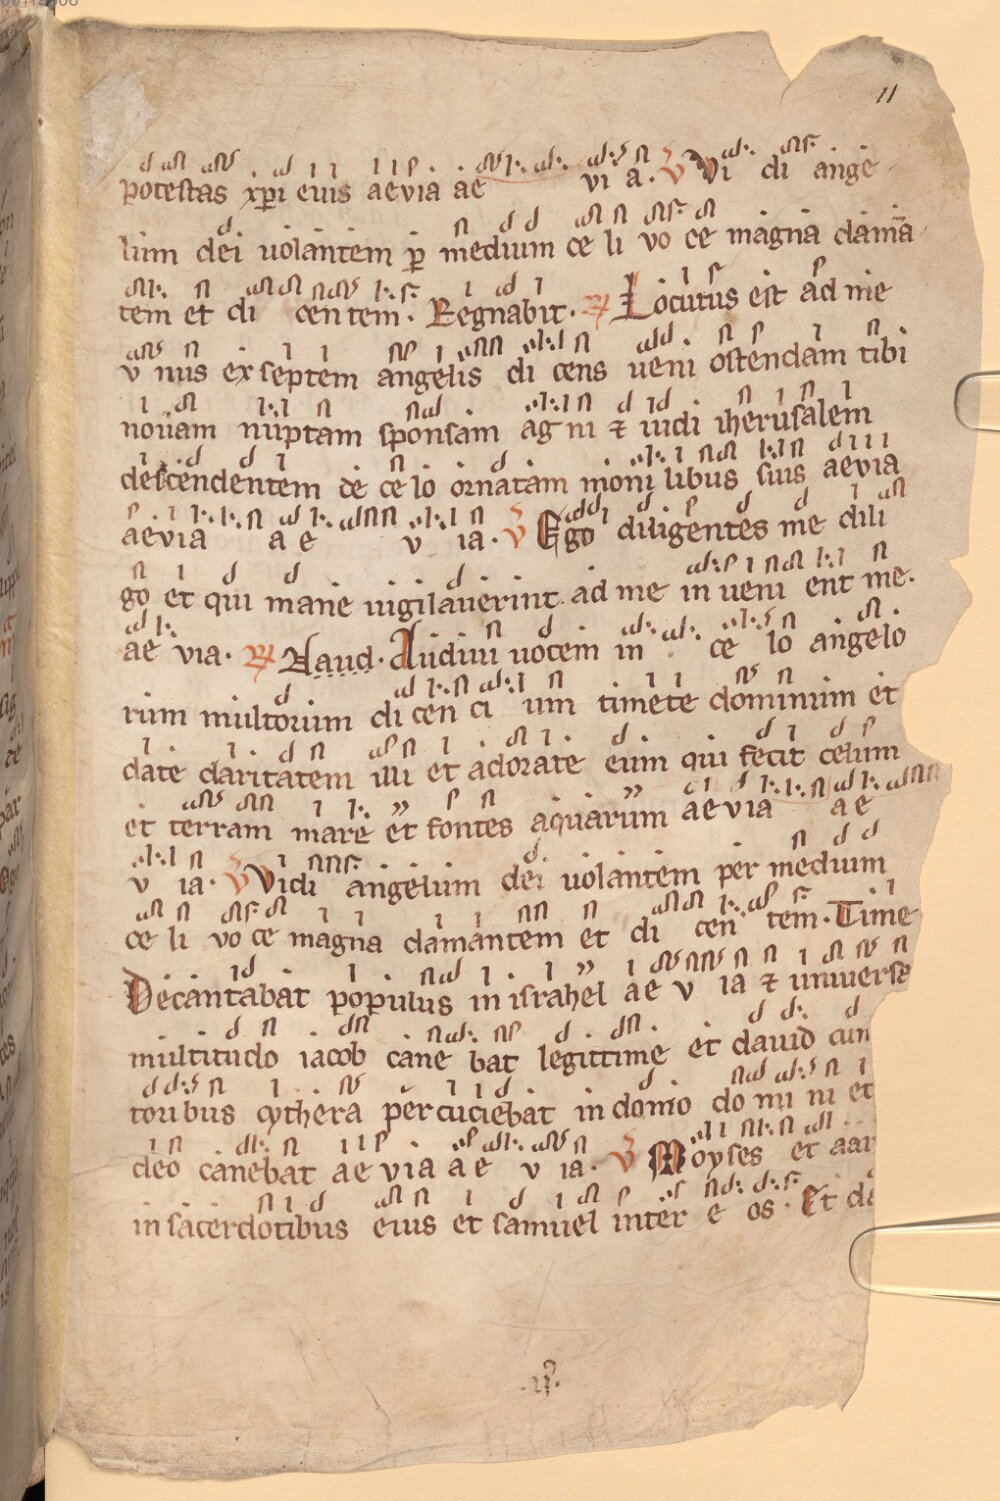 11
potestas xp̄i eius aevia ae vi a. V Vi di ange
lum dei uolantem ꝑ medium ce li vo ce magna clamā
tem et di cen tem. Regnabit. R Locutus est ad me
v nus ex septem angelis di cens ueni ostendam tibi
nouam nuptam sponsam ag ni ⁊ uidi iherusalem
descendentem de ce lo ornatam moni libus suis aevia
aevia a e v ia. V Ego diligentes me dili
go et qui mane uigilauerint ad me in veni ent me.
ae via. R Haud. Audiui uocem in ce lo angelo
rum multorum di cen ci um timete dominum et
date claritatem illi et adorate eum qui fecit celum
et terram mare et fontes aquarum aevia a e
v ia. V Vidi angelum dei uolantem per medium
ce li vo ce magna clamantem et di cen tem. Time
Decantabat populus in israhel ae v ia ⁊ uniuerse
multitudo iacob cane bat legittime et dauid cum
toribus cythera percuciebat in domo do mi ni et
deo canebat ae via a e v ia. V Moyses et aar
in sacerdotibus eius et samuel inter e os. Et